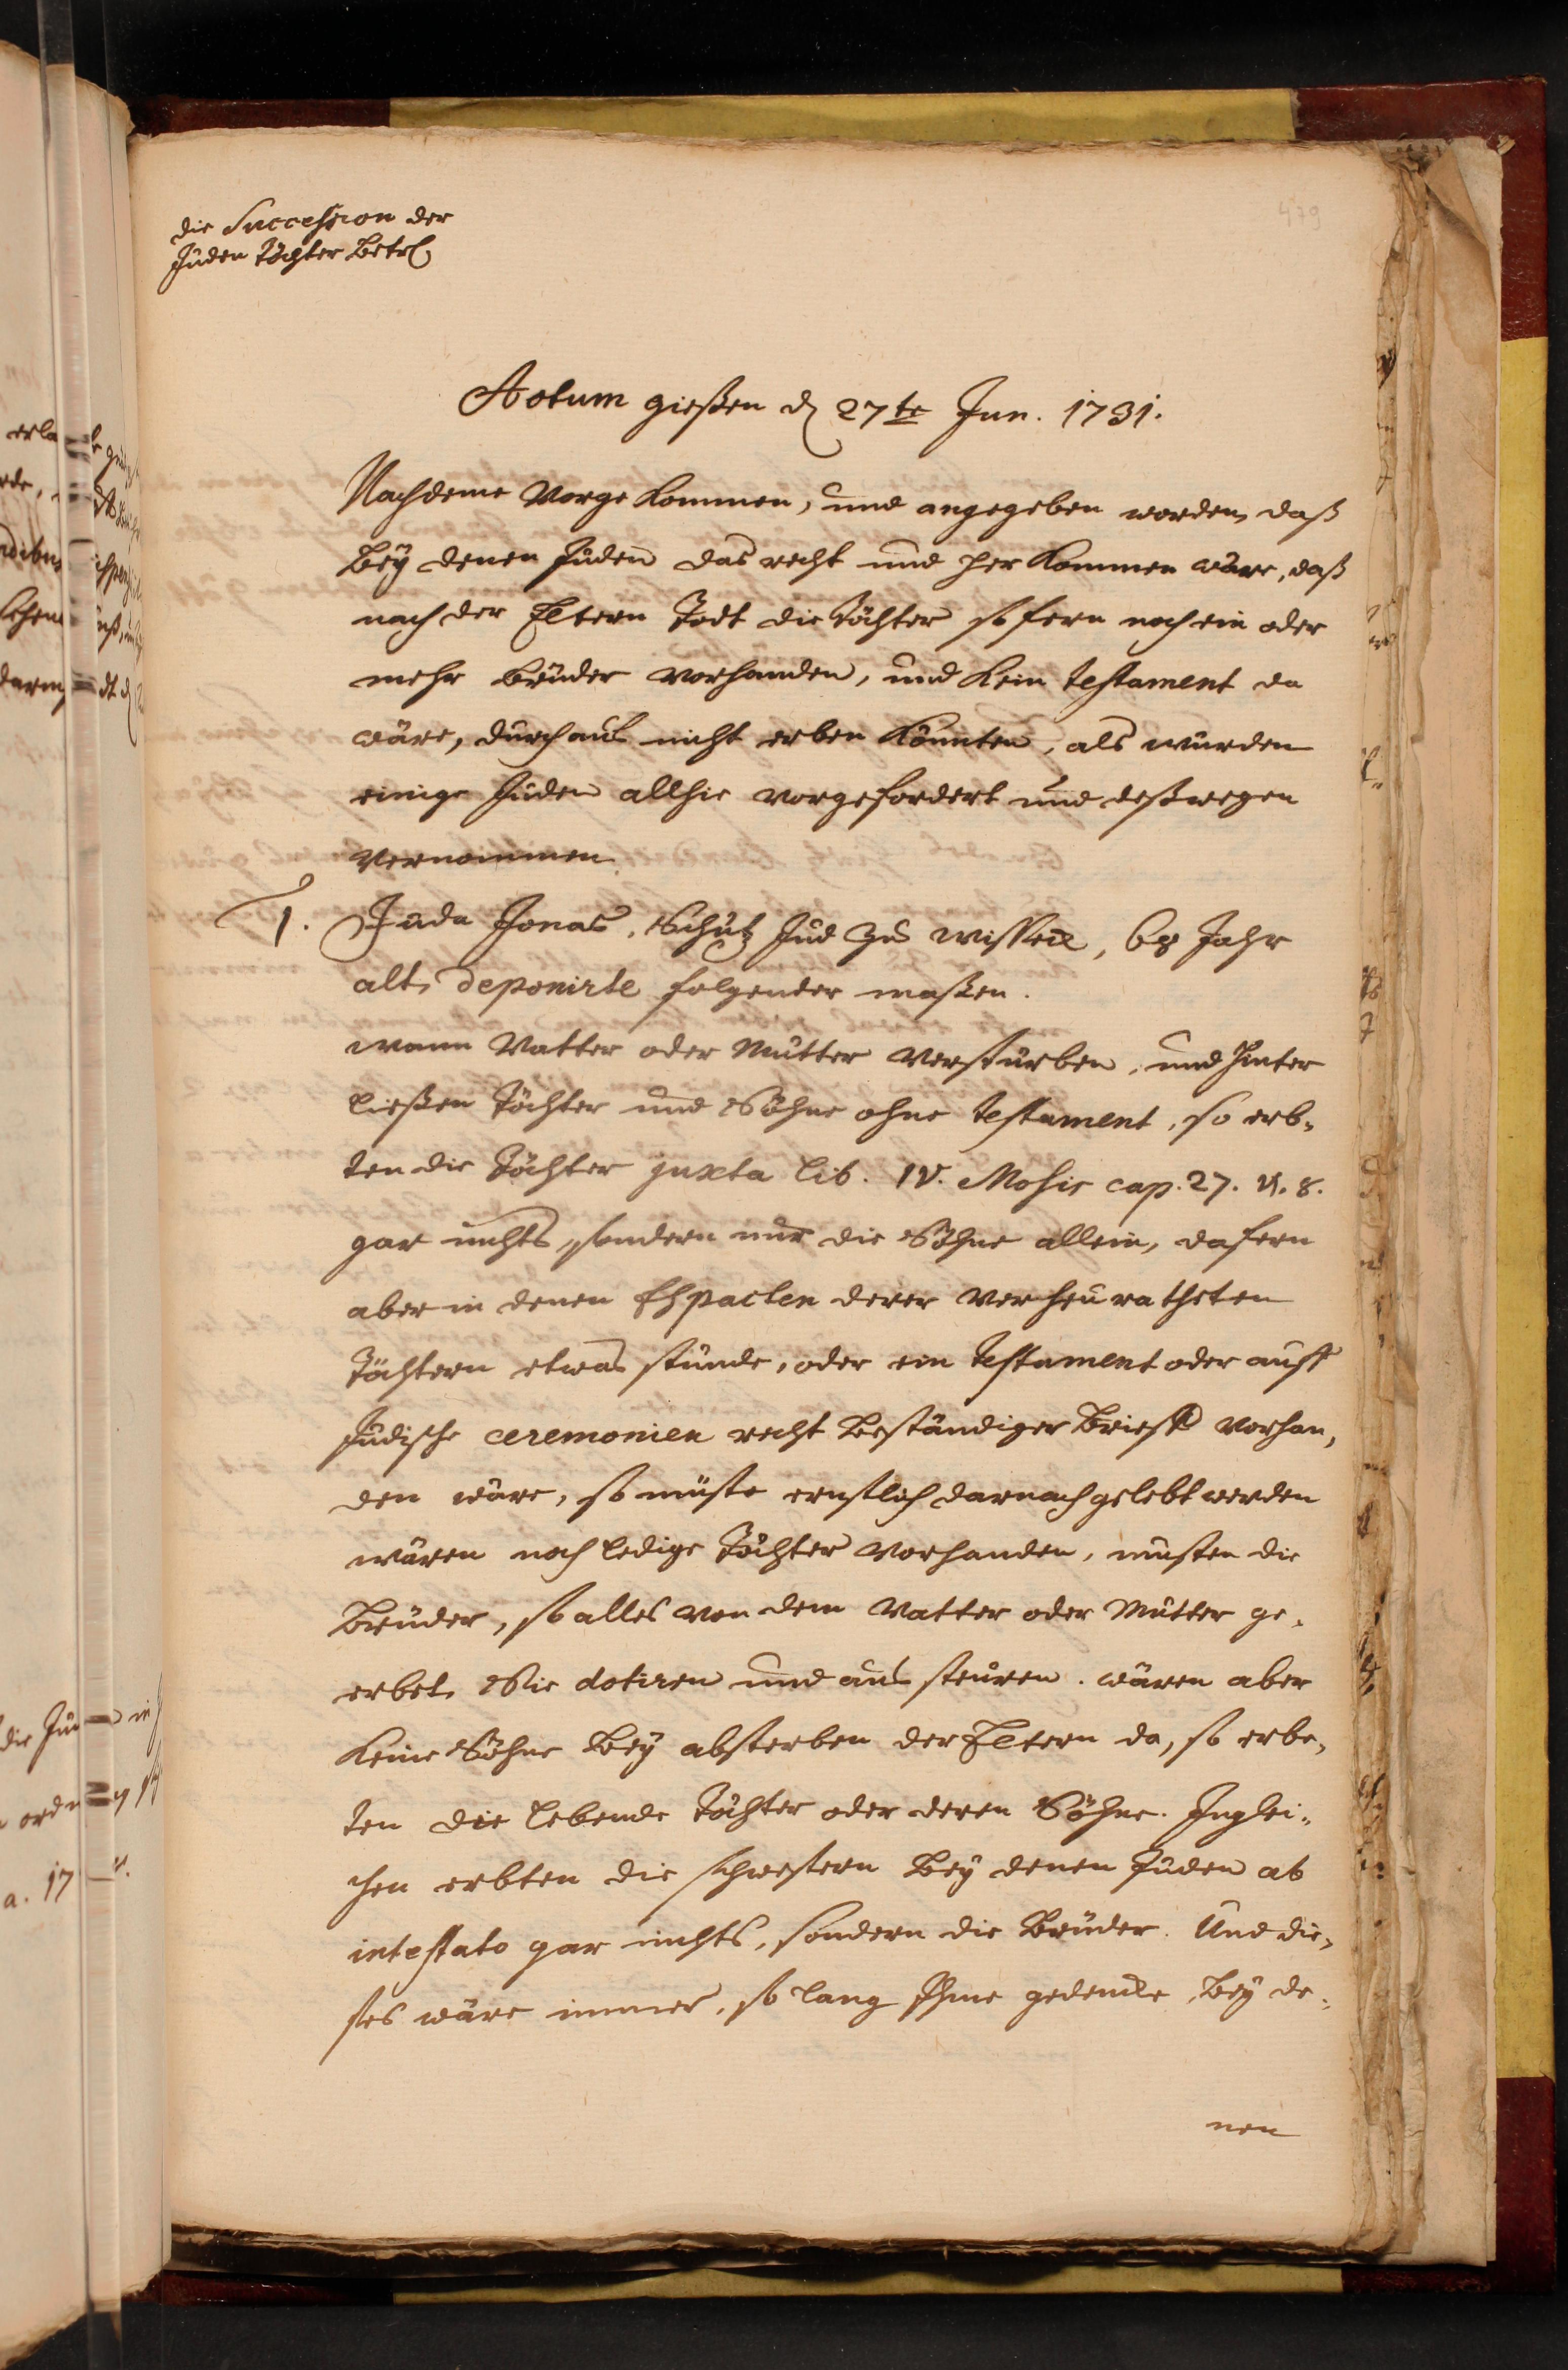 479
die Succession der
Juden Töchter Betr.
Actum gießen d. 27te Jun. 1731.
Nachdeme Vorge kommen, und angegeben worden, daß
Bey denen Juden das recht und her kommen wäre, daß
nach der Eltern Todt die Töchter so fern noch ein oder
mehr Brüder Vorhanden, und kein testament da
wäre, durchaus nicht erben könnten, als wurden
einige Juden allhie Vorgefordert und deßwegen
Vernommen.
1. Juda Jonas, Schutz Jud zu Wisseck, 68 Jahr
alt, deponirte folgender maßen.
wann Vatter oder Mutter Verstürben, und hinter
ließen Töchter und Söhne ohne testament, so erb-
ten die Töchter juxta lib. IV. Mosis cap. 27. V. 8.
gar nichts, sondern nur die Söhne allein, dafern
aber in denen Ehpacten derer Verheuratheten
Töchtern etwas stünde, oder ein testament oder auff
Jüdische ceremonien recht Beständiger Brieff Vorhan-
den wäre, so müste ernstlich darnach gelebt werden
wären noch ledige Töchter Vorhanden, müsten die
Brüder, so alles Von dem Vatter oder Mutter ge-
erbet, Sie dotiren und aus steuren. wären aber
keine Söhne Bey absterben der Eltern da, so erbe-
ten die lebende Töchter oder deren Söhne. Inglei-
chen erbten die schwestern Bey denen Juden ab
intestato gar nichts, sondern die Brüder. Und die-
ses wäre immer, so lang Ihme gedencke, Bey de-
nen